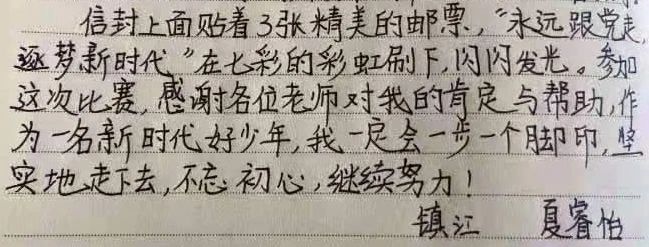 信封上面贴着3张精美的邮票，“永远跟党走，
逐梦新时代”在七彩的彩虹刷下，闪闪发光。参加
这次比赛，感谢各位老师对我的肯定与帮助，作
为一名新时代好少年，我一定会一步一个脚印，坚
实地走下去，不忘初心，继续努力！
镇江 夏睿怡